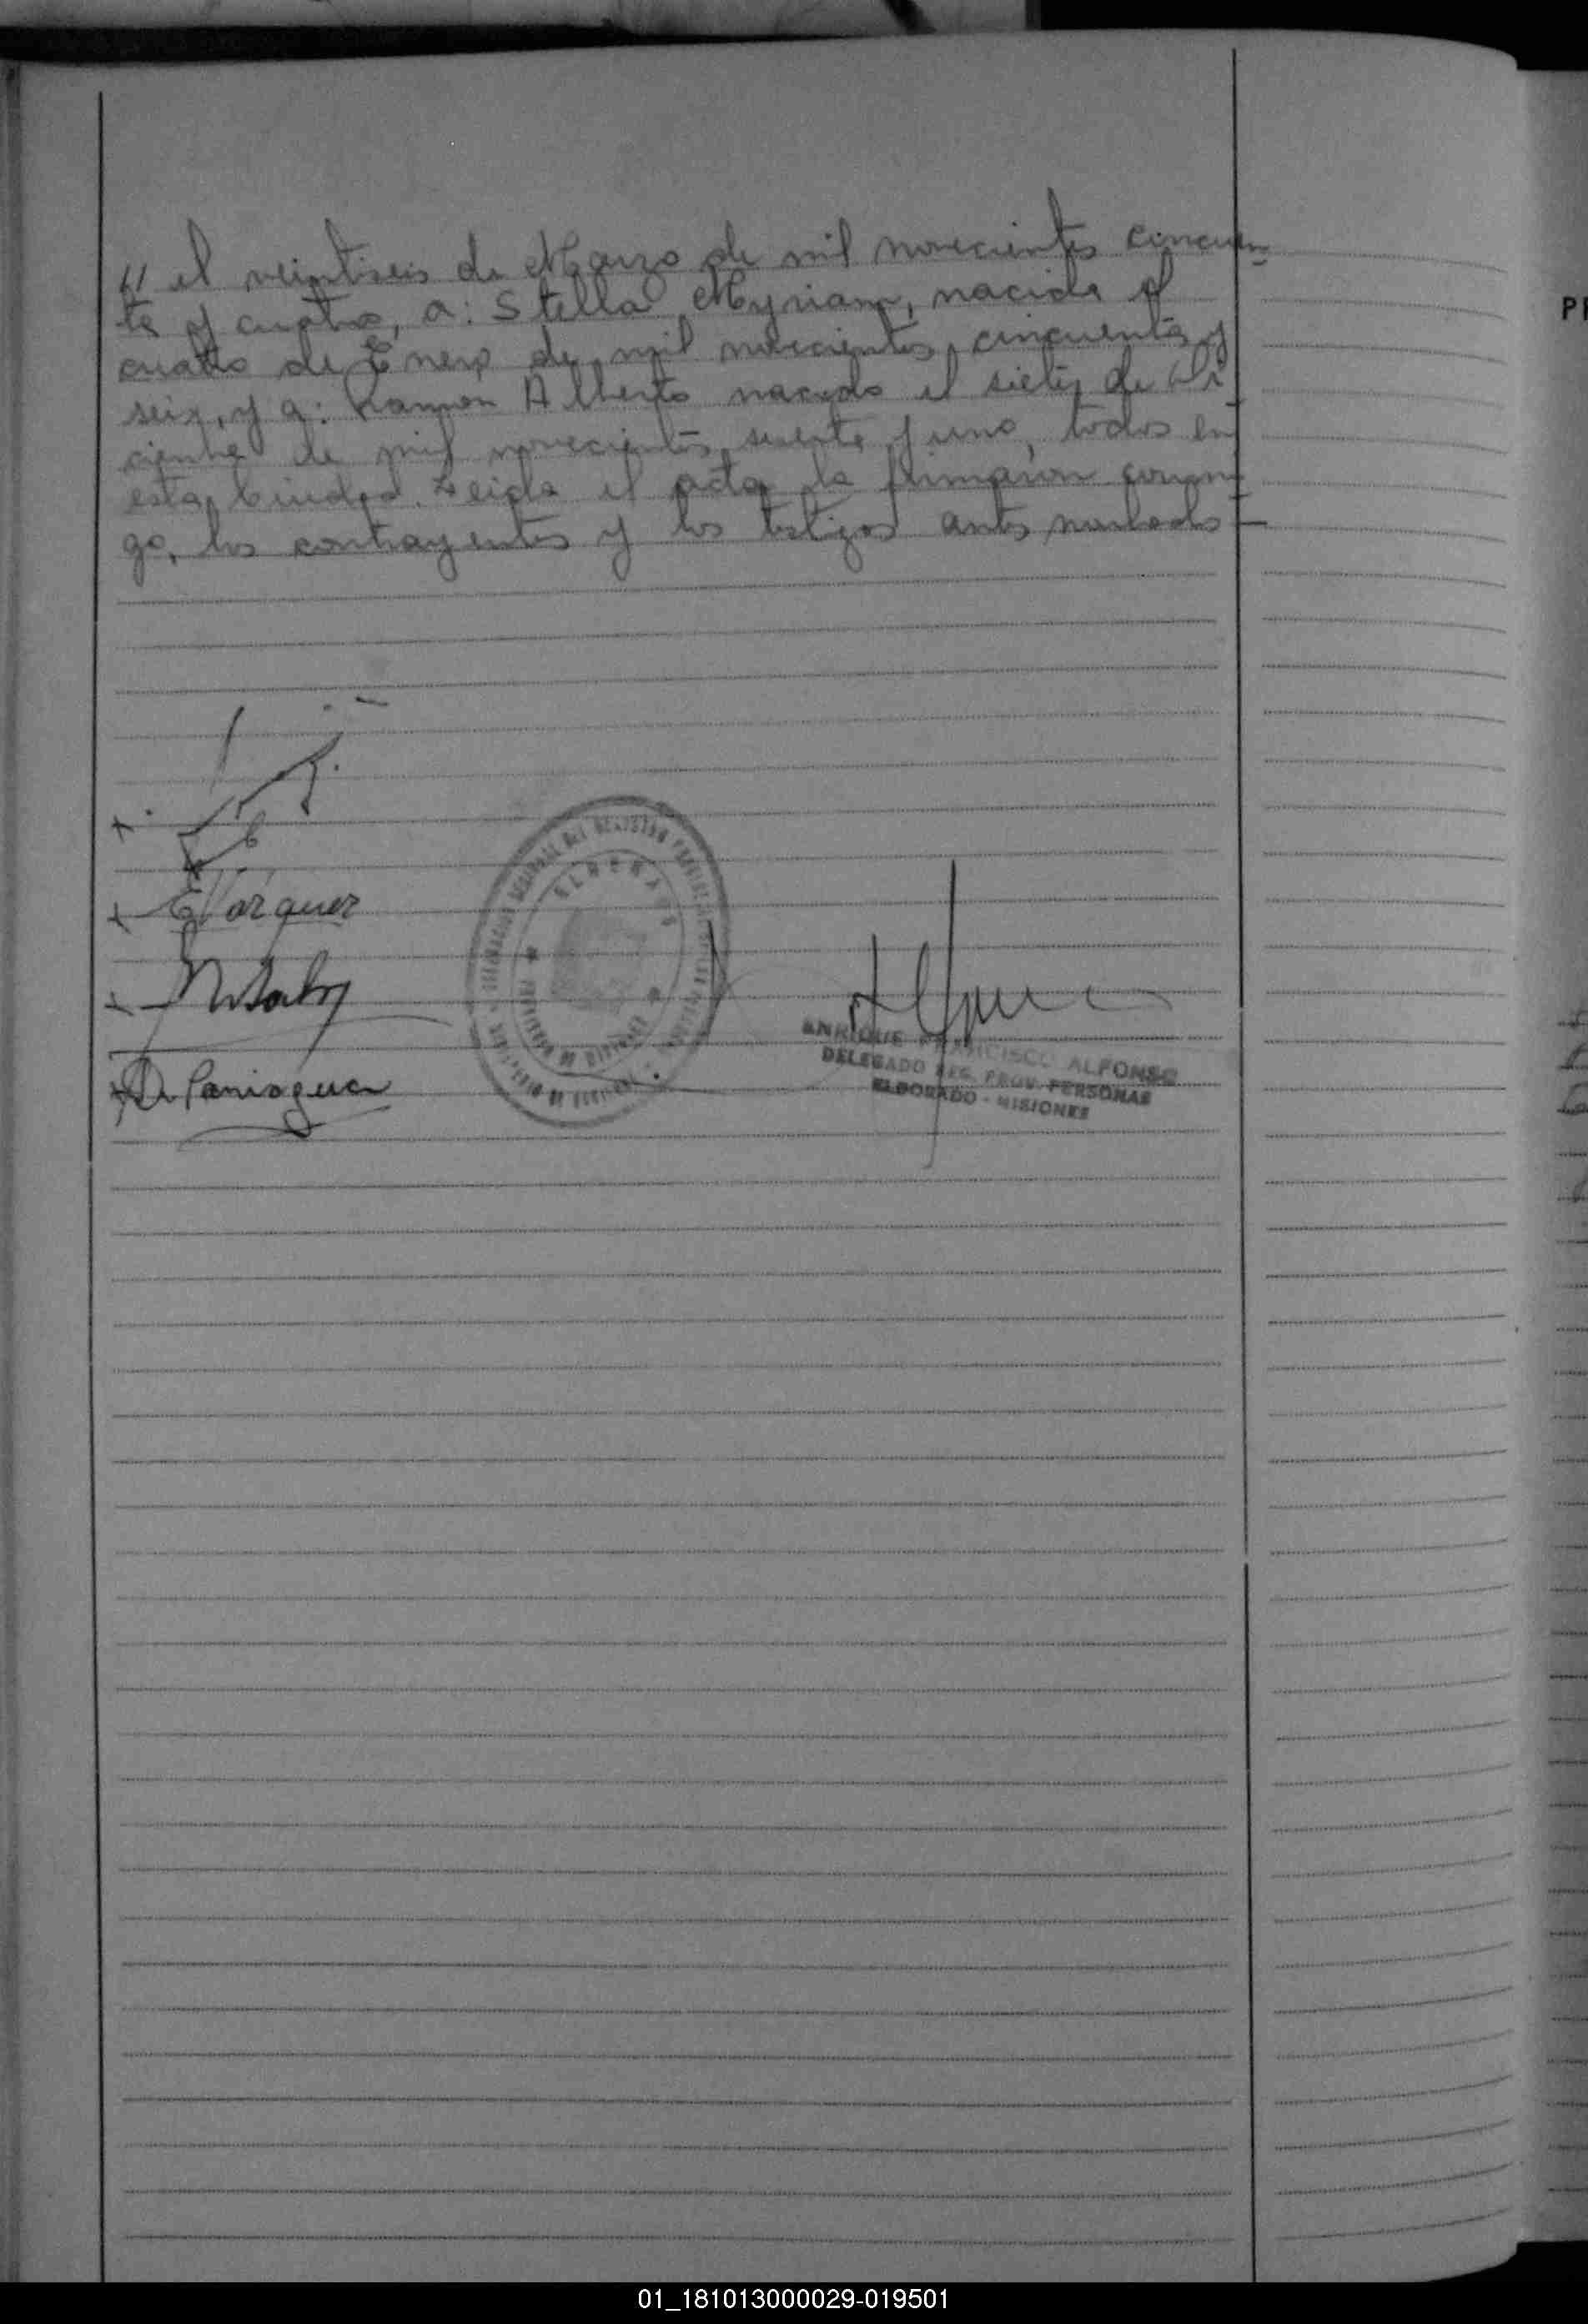 // el veintiseis de Marzo de mil novecientos cincuen-
ta y cuatro, a: Stella Myriam, nacida el
cuatro de Enero de mil novecientos cincuenta y
seis, y a: Ramon Alberto nacido el siete de Di-
ciembre de mil novecientos sesenta y uno, todos en
esta Ciudad. Leida el acta la firmaron conmi-
go, los contrayentes y los testigos antes nombrados
E Vázquez
Paniagua
ELDORADO
ENRIQUE FRANCISCO ALFONSO
DELEGADO REG. PROV. PERSONAS
ELDORADO - MISIONES
PR
01_181013000029-019501